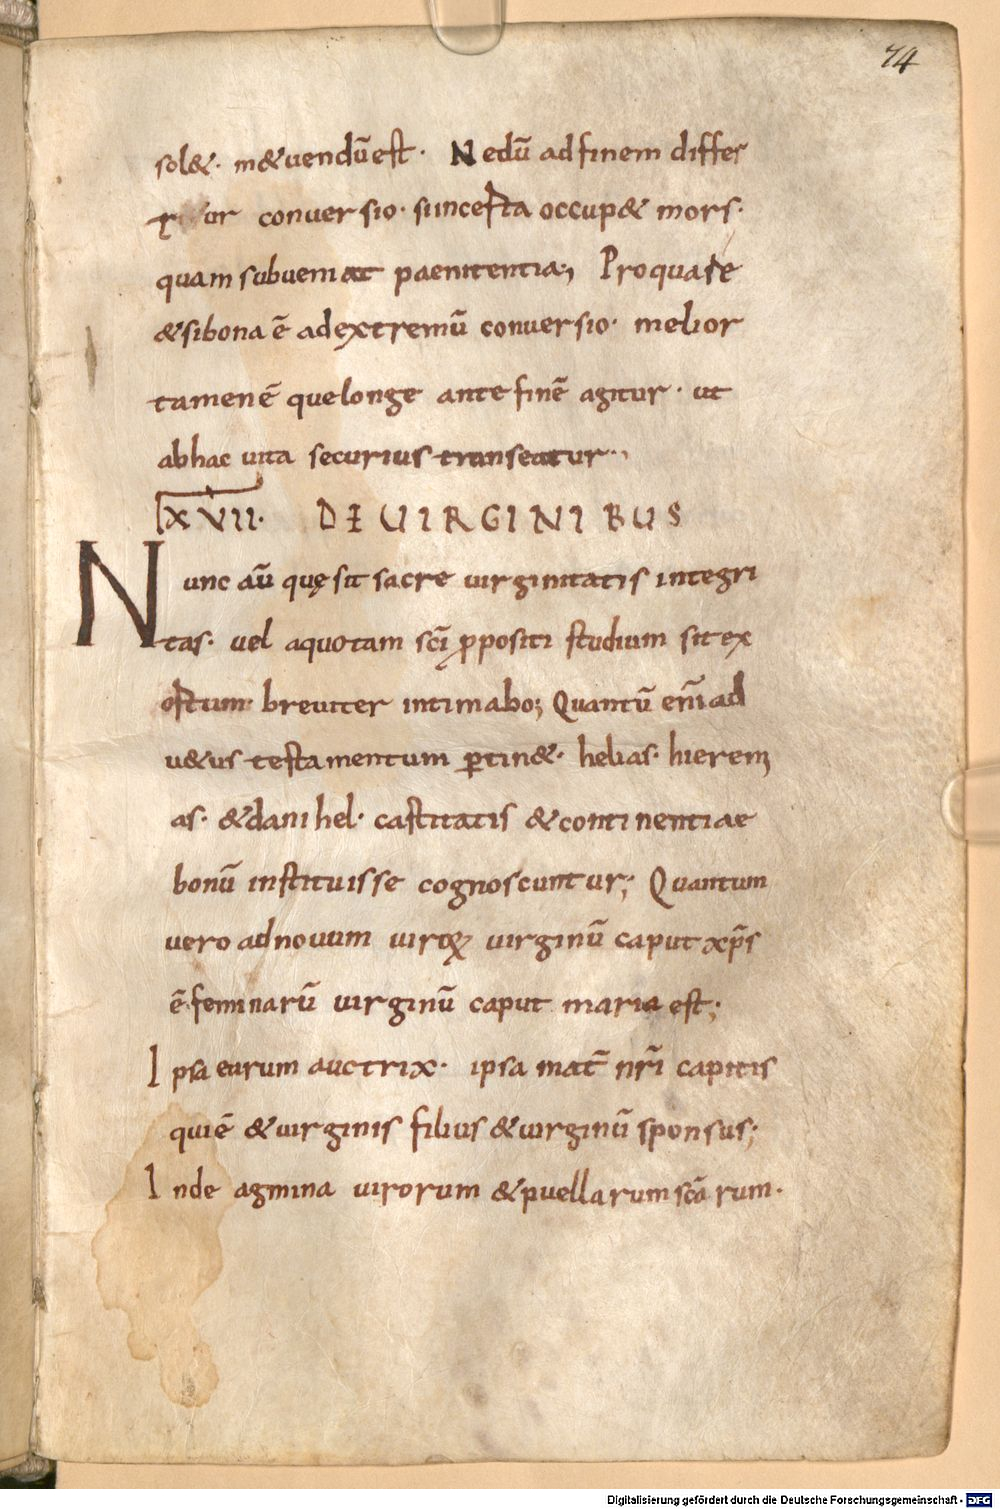 74
sol&. m&uendū est. Nedū ad finem differ
r tur conuersio. si incesta occup& mors.
quam subueniat paenitentia; Pro qua re
& si bona ē ad extremū conuersio. melior
tamen ē que longe ante finē agitur. ut
ab hac uita securius transeatur.,
LXVII. DE UIRGINIBUS
Nunc aū quę sit sacre uirginitatis integri
tas. uel a quo tam sc̄i p̱positi studium sit ex
ostum. breuiter intimabo; Quantū eni̅ ad
u&us testamentum ꝑtin&. helias. hierem
as. & danihel. castitatis & continentiae
bonū instituisse cognoscuntur; Quantum
uero ad nouum uiroꝝ uirginū caput xp̄s
ē. feminarū uirginū caput maria est;
Ipsa earum auctrix. ipsa mat̄ nr̄i capitis
qui ē & uirginis filius & uirginū sponsus;
Inde agmina uirorum & puellarum scārum.
Digitalisierung gefördert durch die Deutsche Forschungsgemeinschaft - DFG